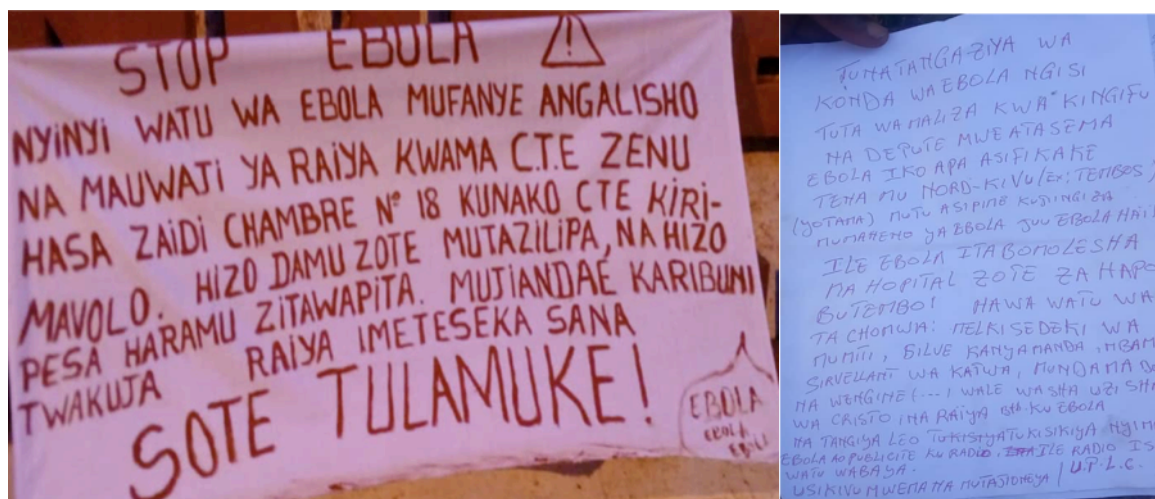 STOP EBOLA
NYINYI WATU WA EBOLA MUFANYE ANGALISHO
NA MAUWAJI YA RAIYA KWAMA C.T.E ZENU
HASA ZAIDI CHAMBRE N° 18 KUNAKO CTE KIRI-
MAVOLO. HIZO DAMU ZOTE MUTAZILIPA, NA HIZO
PESA HARAMU ZITAWAPITA. MUJIANDAE KARIBUNI
TWAKUJA RAIYA IMETESEKA SANA
SOTE TULAMUKE!
EBOLA
EBOLA
EBOLA
TUNATANGAZIYA WA
KONDA WA EBOLA NGISI
TUTA WAMALIZA KWA KINGIFU
NA DEPUTE MWE ATASEMA
EBOLA IKO APA ASIFIKAKE
TENA MU NORD-KIVU/EX: TEMBOS)
MUTU ASIPIME KUJINGIZA
MUMANENO YA EBOLA JUU EBOLA
ILE EBOLA ITABOMOLESHA
MA HOPITAL ZOTE ZA HAPO
BUTEMBO! HAWA WATU WA
TA CHOMWA: MELKISEDEKI WA
MUMITI, KANYAMANDA,
WA KATWA,
NA WENGINE (...) WALE
WA CRISTO RAIYA KU EBOLA
NA TANGIYA LEO
EBOLA AO PUBLICITE KU RADIO, ILE RADIO
WATU WABAYA.
USIKIVU MWEMA NA / U.P.L.C.